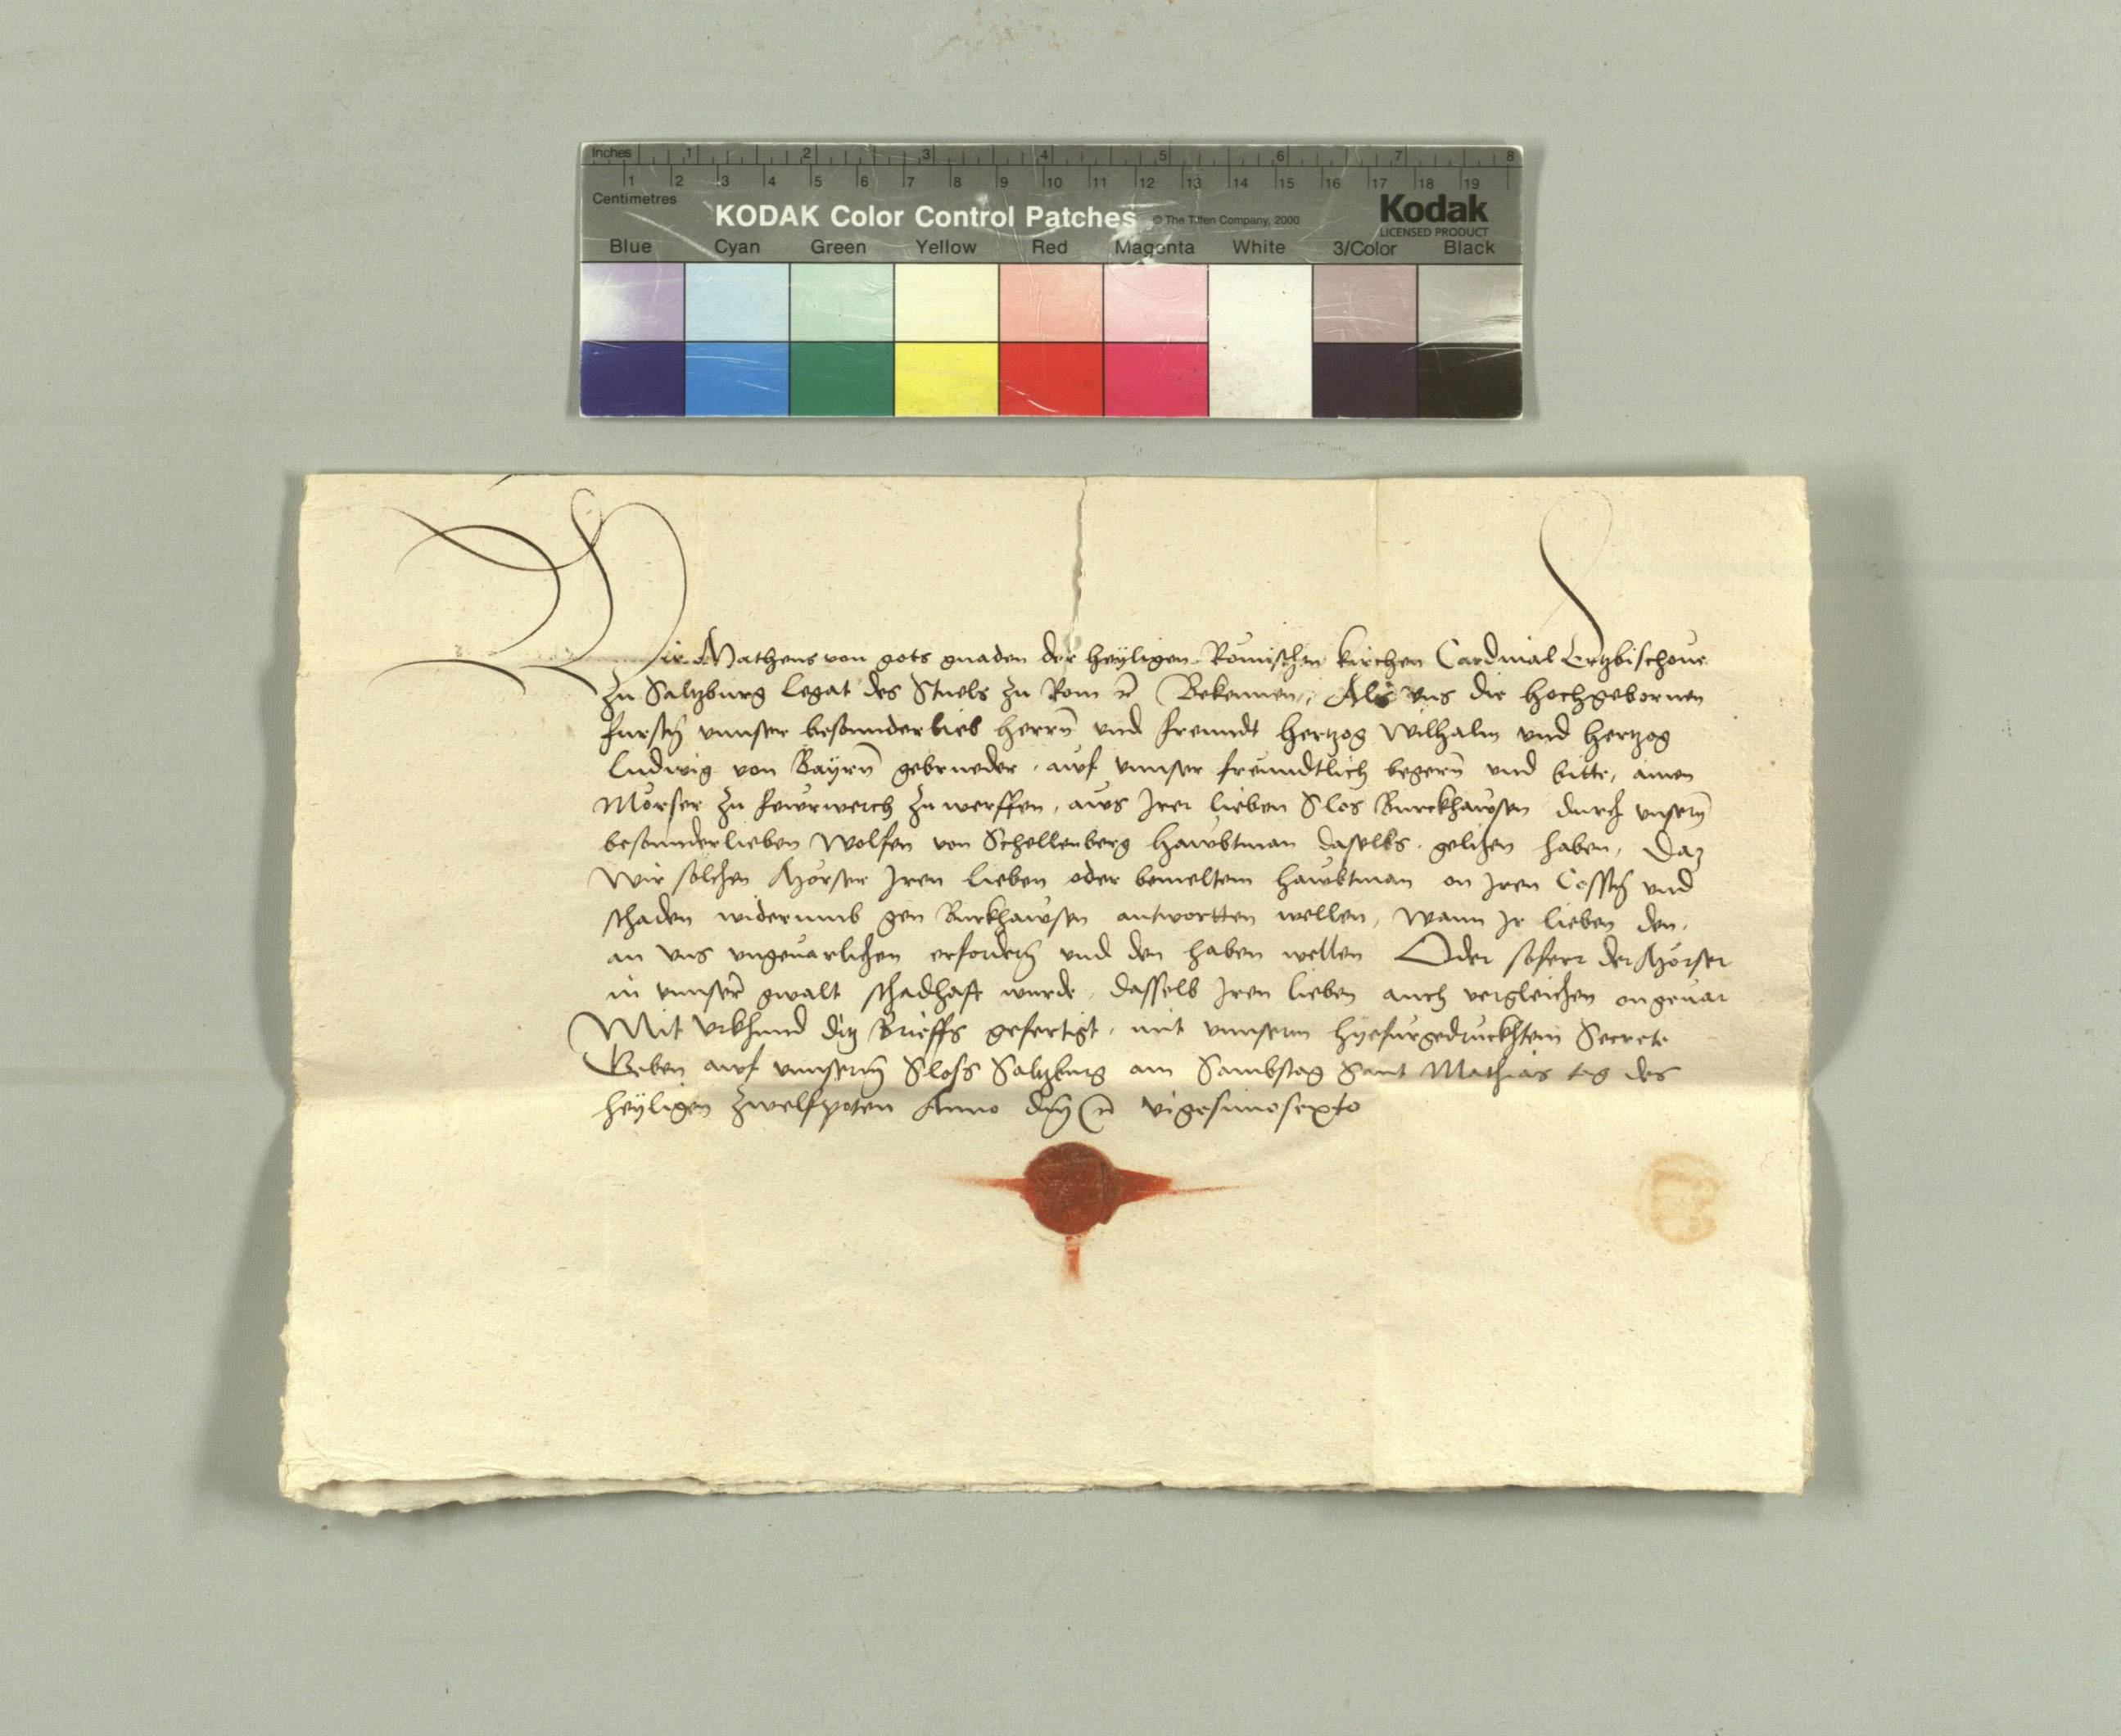 Inches 1 2 3 4 5 6 7 8
1 2 3 4 5 6 7 8 9 10 11 12 13 14 15 16 17 18 19
Centimetres
KODAK Color Control Patches © The Tiffen Company, 2000 Kodak
LICENSED PRODUCT
Blue Cyan Green Yellow Red Magenta White 3/Color Black
Wir Matheus von gots gnaden der heyligen Römischen kirchen Cardinal Ertzbischoue
zu Saltzburg Legat des Stuels zu Rom ꝛc Bekennen, Als vns die hochgebornen
fursten vnnser besonnderlieb herrn̄ vnd freundt hertzog Wilhalm vnd hertzog
Ludwig von Bayrn̄ gebrueder, auf vnnser freundtlich begern̄ vnd bitte, ainen
Mörser zu fewrwerch zu werffen, aus Jrer lieben Slos Burckhawsen durch vnsern̄
besonnderlieben Wolfen von Schellenberg hawbtman daselbs gelihen haben, Daz
Wir solhen Mörser Jren lieben oder bemeltem hawbtman on Jren Cosstn̄ vnd
schaden widerumb gen Burkhawsen antwortten wellen, Wann Jr lieben den,
an vns vngeuarlichen erfordern̄ vnd den haben wellen Oder soferr der Mörser
in vnnser gwalt schadhaft wurde, dasselb Jren lieben auch vergleichen ongeuar
Mit Vrkhund ditz Brieffs gefertigt, mit vnnserm hyefürgedruckhtem Secrete
Geben auf vnnserm̄ Sloss Saltzburg am Sambstag Sant Mathias tag des
heyligen zwelfpoten Anno dn̄j ꝛc vigesimosexto